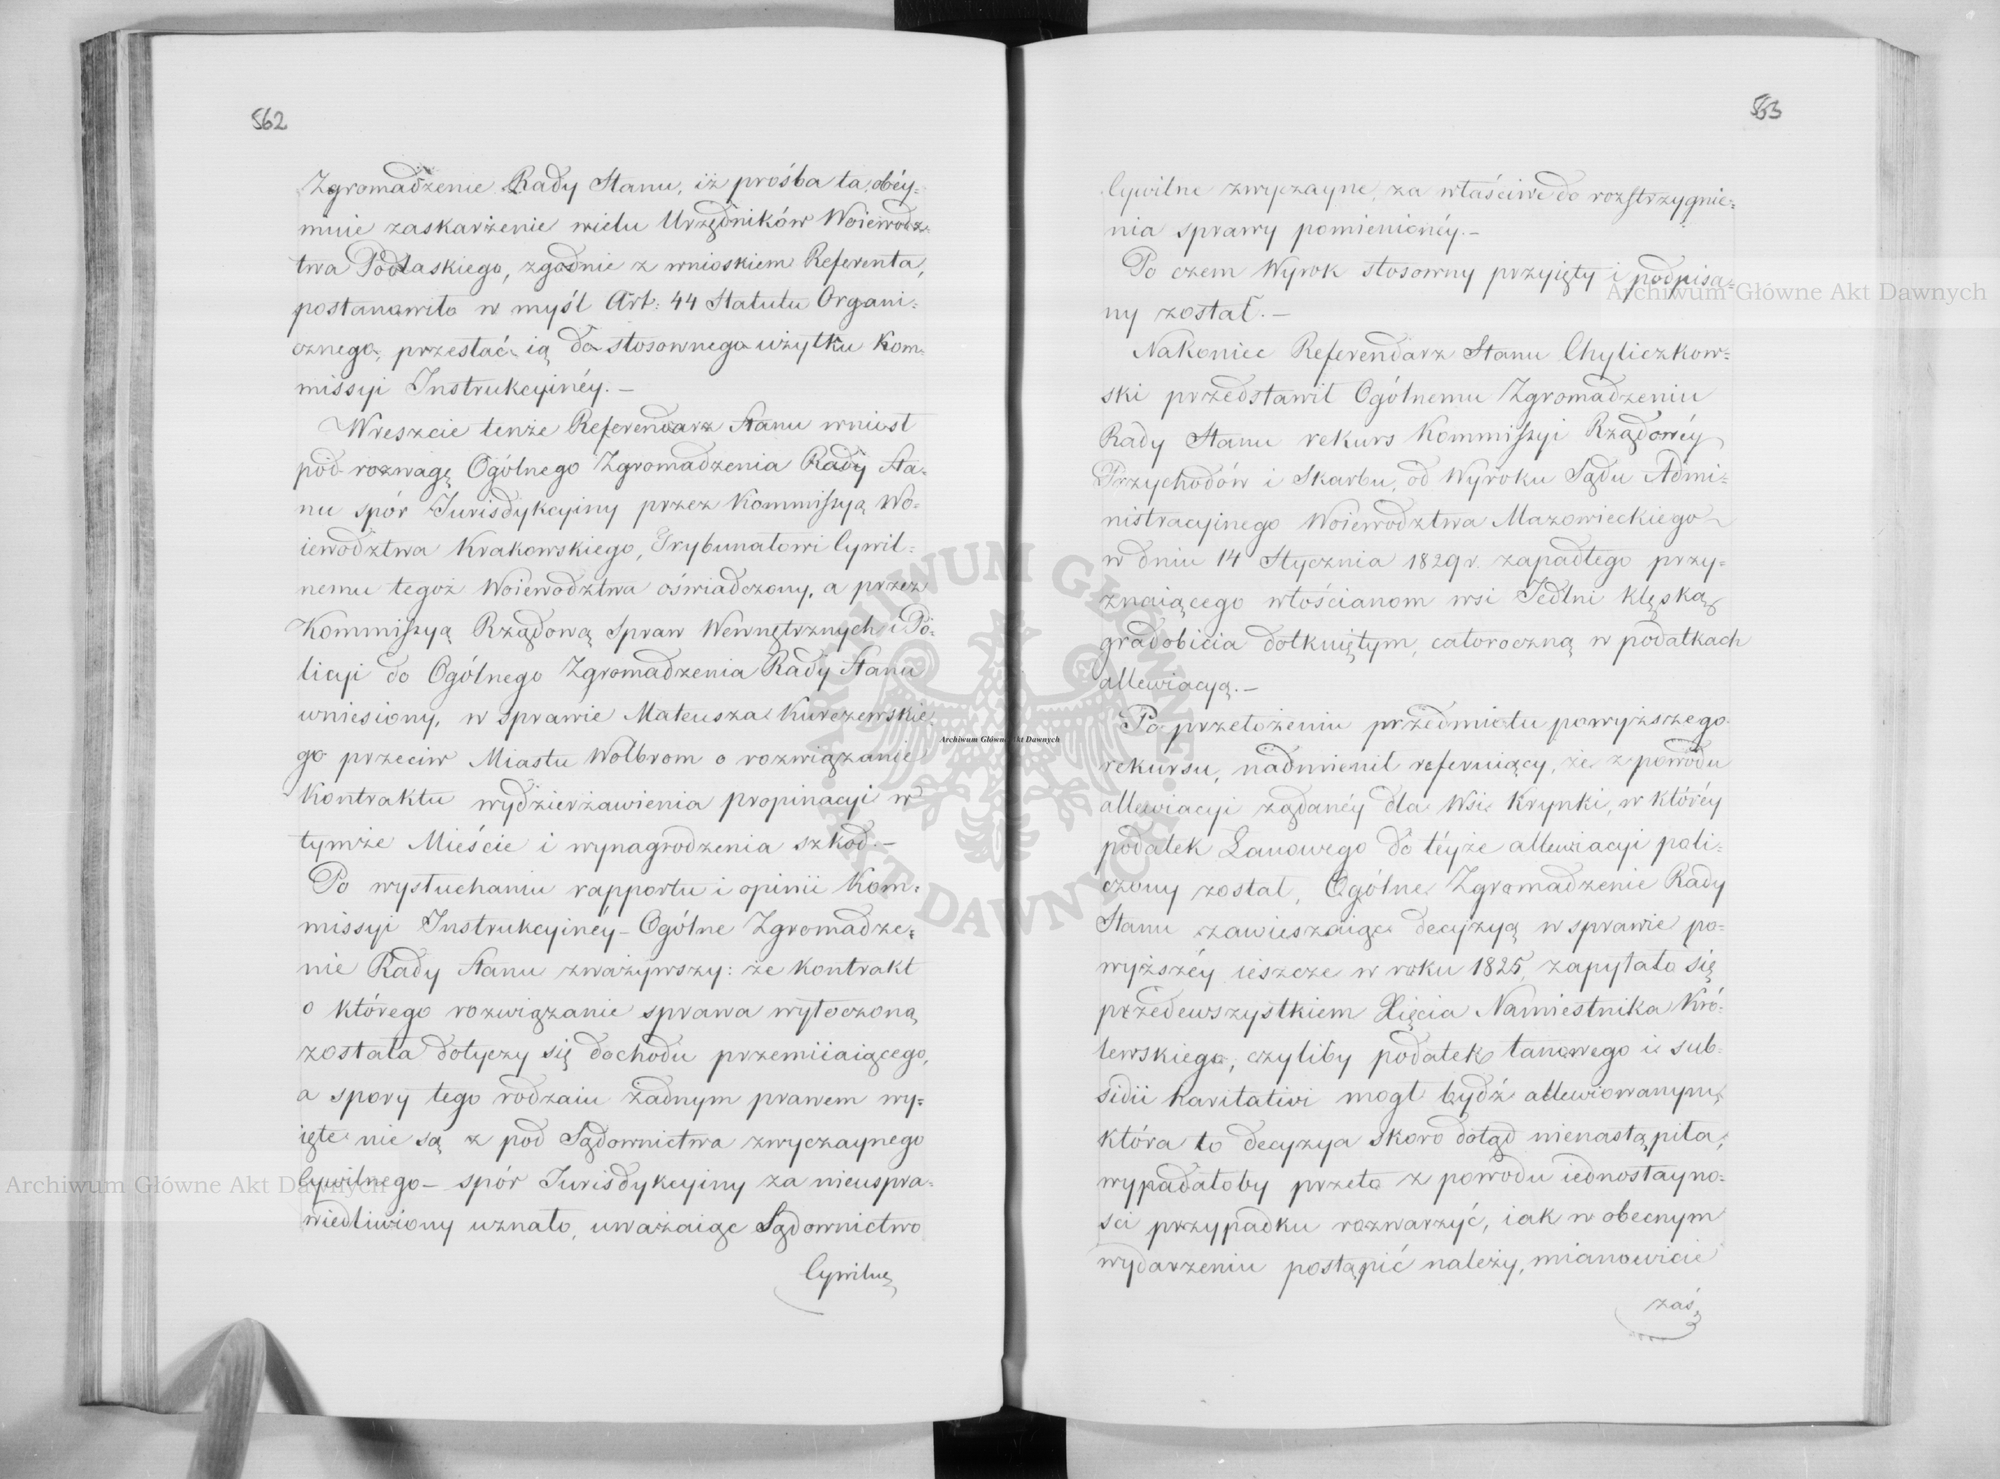 562
Zgromadzenie Rady Stanu, iż prośba ta obéy-
muie zaskarżenie wielu Urzędników Woiewodz-
twa Podlaskiego, zgodnie z wnioskiem Referenta,
postanowiło w myśl Art: 44 Statutu Organi-
cznego, przesłać ią do stosownego użytku Kom-
missyi Instrukcyinéy.-
Wreszcie tenże Referendarz Stanu wniósł
pod rozwagę Ogólnego Zgromadzenia Rady Sta-
nu spór Jurisdykcyiny przez Kommissyą Wo-
iewództwa Krakowskiego, Trybunałowi Cywil-
nemu tegoż Woiewództwa oświadczony, a przez
Kommissyą Rządową Spraw Wewnętrznych i Po-
licyi do Ogólnego Zgromadzenia Rady Stanu
wniesiony, w sprawie Mateusza Kurczewskie-
go przeciw Miastu Wolbrom o rozwiązanie
Kontraktu wydzierżawienia propinacyi w
tymże Mieście i wynagrodzenia szkód.-
Po wysłuchaniu rapportu i opinii Kom-
missyi Instrukcyinéy - Ogólne Zgromadze-
nie Rady Stanu zważywszy: że kontrakt
o którego rozwiązanie sprawa wytoczoną
została dotyczy się dochodu przemiiaiącego,
a spory tego rodzaiu żadnym prawem wy-
ięte nie są z pod Sądownictwa zwyczaynego
Cywilnego - spór Jurisdykcyiny za nieuspra-
wiedliwiony uznało, uważaiąc Sądownictwo
Cywilne
563
Cywilne zwyczayne, za właściwe do rozstrzygnie-
nia sprawy pomienionéy.-
Po czem Wyrok stosowny przyięty i podpisa-
ny został.-
Nakoniec Referendarz Stanu Chyliczkow-
ski przedstawił Ogólnemu Zgromadzeniu
Rady Stanu rekurs Kommissyi Rządowéy
Przychodów i Skarbu, od Wyroku Sądu Admi-
nistracyinego Woiewództwa Mazowieckiego
w dniu 14 Stycznia 1829 r. zapadłego przy-
znaiącego włościanom wsi Jedlni klęską
gradobicia dotkniętym, całoroczną w podatkach
allewiacyą.-
Po przełożeniu przedmiotu powyższego
rekursu, nadmienił referuiący, że z powodu
allewiacyi żądanéy dla Wsi Krynki, w któréy
podatek Łanowego do téyże allewiacyi poli-
czony został, Ogólne Zgromadzenie Rady
Stanu zawieszaiąc decyzyą w sprawie po-
wyższéy ieszcze w roku 1825, zapytało się
przedewszystkiem Xięcia Namiestnika Kró-
lewskiego, czyliby podatek łanowego i sub-
sidii karitativi mógł bydź allewiowanym,
która to decyzya skoro dotąd nienastąpiła,
wypadałoby przeto z powodu iednostayno-
ści przypadku rozważyć, iak w obecnym
wydarzeniu postąpić należy, mianowicie
zaś
Archiwum Główne Akt Dawnych
Archiwum Główne Akt Dawnych
Archiwum Główne Akt Dawnych
ARCHIWUM GŁÓWNE AKT DAWNYCH